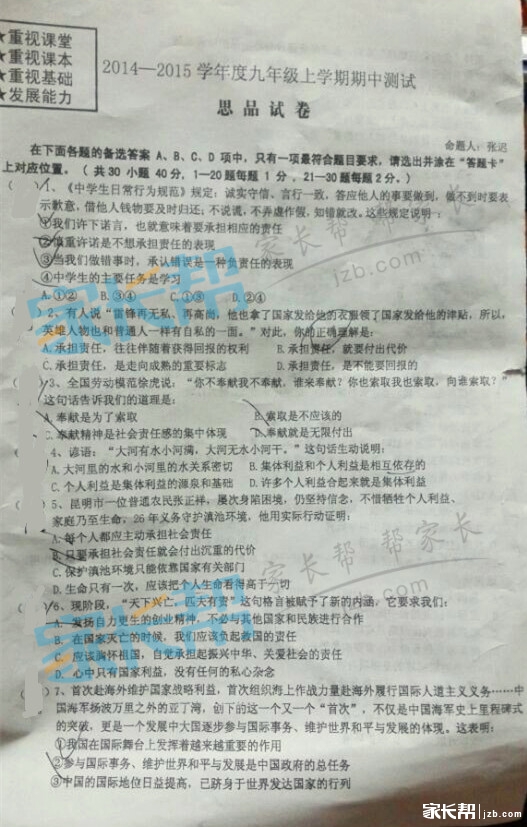 ★重视课堂
★重视课本
★重视基础
★发展能力
2014—2015 学年度九年级上学期期中测试
思品试卷
命题人：张迟
在下面各题的备选答案 A、B、C、D 项中，只有一项最符合题目要求，请选出并涂在“答题卡”
上对应位置。（ 共 30 小题 40 分，1—20题每题 1 分 ，21—30题每题 2 分。）
（ ）1、《中学生日常行为规范》规定：诚实守信、言行一致，答应他人的事要做到，做不到时要表
示歉意，借他人钱物要及时归还；不说谎，不弄虚作假，知错就改。这些规定说明：
①我们许下诺言，也就意味着要承担相应的责任
②慎重许诺是不想承担责任的表现
③当我们做错事时，承认错误是一种负责任的表现
④中学生的主要任务是学习
A.①② B.③④ C.①③ D.②④
（ ）2、有人说“雷锋再无私、再高尚，他也拿了国家发给他的衣服领了国家发给他的津贴，所以，
英雄人物也和普通人一样有自私的一面。”对此，你的正确理解是：
A.承担责任，往往伴随着获得回报的权利 B.承担责任，就要付出代价
C.承担责任，是走向成熟的重要标志 D.承担责任，是不能要回报的
（ ）3、全国劳动模范徐虎说：“你不奉献我不奉献，谁来奉献？你也索取我也索取，向谁索取？”
这句话告诉我们的道理是：
A.奉献是为了索取 B.索取是不应该的
C.奉献精神是社会责任感的集中体现 D.奉献就是无限付出
（ ）4、谚语：“大河有水小河满，大河无水小河干。”这句话生动说明：
A.大河里的水和小河里的水关系密切 B.集体利益和个人利益是相互依存的
C.个人利益是集体利益的源泉和基础 D.许多个人利益合起来就是集体利益
（ ）5、昆明市一位普通农民张正祥，屡次身陷困境，仍坚持信念，不惜牺牲个人利益、
家庭乃至生命，26 年义务守护滇池环境，他用实际行动证明：
A.每个人都应主动承担社会责任
B.只要承担社会责任就会付出沉重的代价
C.保护滇池环境只能依靠国家有关部门
D.生命只有一次，应该把个人生命看得高于一切
（ ）6、现阶段，“天下兴亡，匹夫有责”这句格言被赋予了新的内涵，它要求我们：
A. 发扬自力更生的创业精神，不必与其他国家和民族进行合作
B. 在国家灭亡的时候，我们应该负起救国的责任
应该胸怀祖国，自觉承担起振兴中华、关爱社会的责任
D. 心中只有国家利益，没有任何的私心杂念
（ ）7、首次赴海外维护国家战略利益，首次组织海上作战力量赴海外履行国际人道主义义务……中
国海军扬波万里之外的亚丁湾，创下的这一个又一个“首次”，不仅是中国海军史上里程碑式
的突破，更是一个发展中大国逐步参与国际事务、维护世界和平与发展的体现。这表明：
①我国在国际舞台上发挥着越来越重要的作用
②参与国际事务、维护世界和平与发展是中国政府的总任务
③中国的国际地位日益提高，已跻身于世界发达国家的行列
家长帮
家长帮 帮家长
jzb.com
家长帮
家长帮 帮家长
jzb.com
家长帮
家长帮|jzb.com